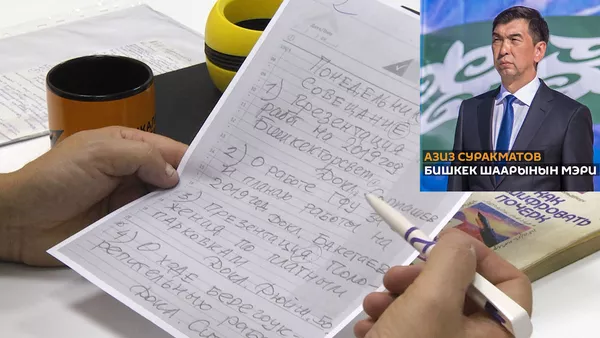 2
ПОНЕДЕЛЬНИК
СОВЕЩАНИЕ
1) ПРЕЗЕНТАЦИЯ
РАБТ НА 2019 ГОД
БИШКЕКТОРСОВЕТ
ДОКЛ.
2) О РАБОТЕ ГФУ ЗА
И ПЛАНАХ РАБОТЫ НА
2019 ГОД ДОКЛ. БАКЕТАЕВ
3) ПРЕЗЕНТАЦИЯ ПОЛО-
ЖЕНИЯ ПО ПЛАТНЫМ
ПАРКОВКАМ
ДОКЛ.
4) О ХОДЕ БЕРЕГОУК-
РЕПИТЕЛЬНЫХ РАБОТ
ДОКЛ.
АЗИЗ СУРАКМАТОВ
БИШКЕК ШААРЫНЫН МЭРИ
ПОЧЕРК